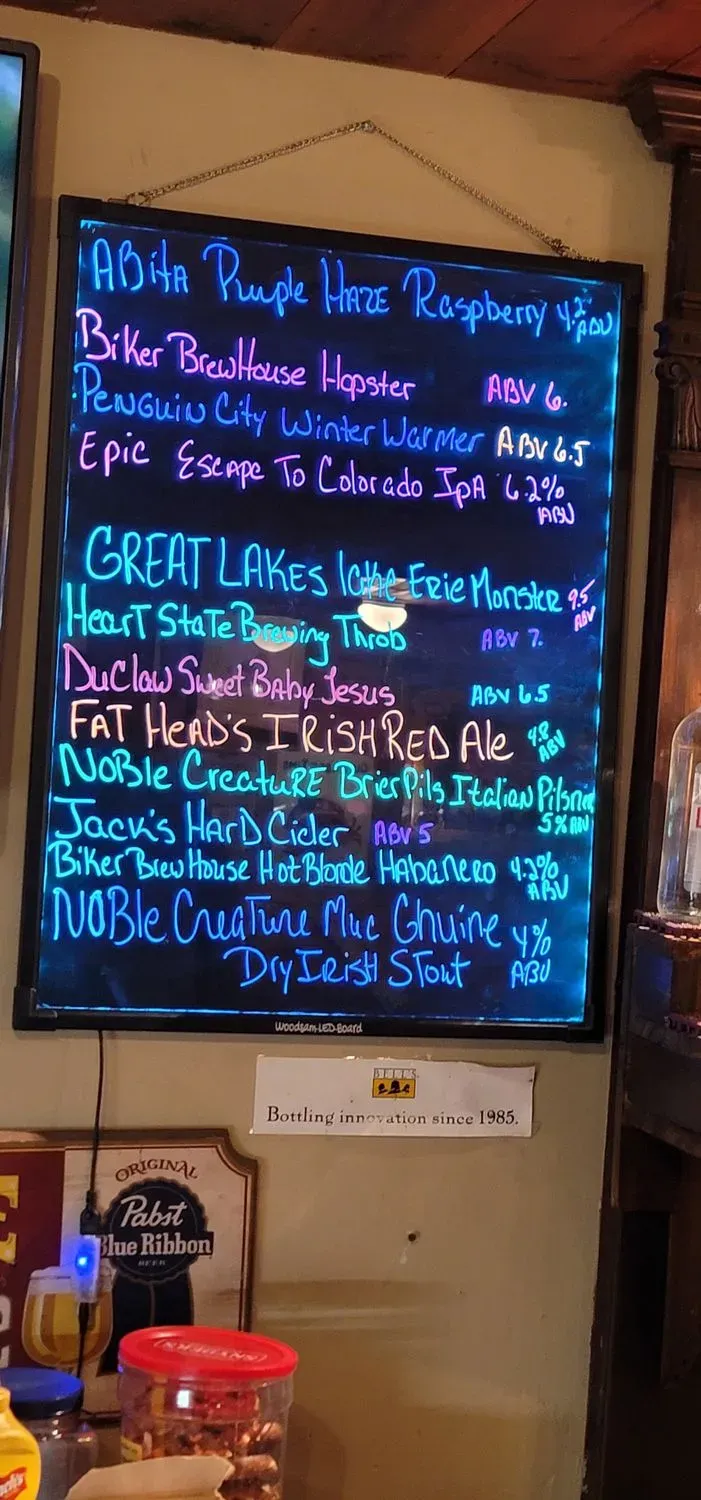 ABitA Purple HAZE Raspberry 4.2% ABV
Biker BrewHouse Hopster ABV 6.
Penguin City Winter Warmer ABV 6.5
Epic Escape To Colorado IpA 6.2% ABV
GREAT LAKES Icthe Erie Monster 9.5 ABV
HearT StaTe Brewing Throb ABV 7.
DuClaw Sweet BAby Jesus ABV 6.5
FAT HeAD'S IRiSH RED Ale 4.8 ABV
NoBle CreatuRE BrierPils Italian Pilsner 5% ABV
Jack's HarD Cider ABV 5
Biker Brew House Hot Blonde HAbanero 4.2% ABV
NOBle CreaTure Muc Ghuine 4% ABV
Dry IRISH STout
Woodsam-LED-Board
BELL'S
Bottling innovation since 1985.
ORIGINAL
Pabst
Blue Ribbon
BEER
SNYDER'S